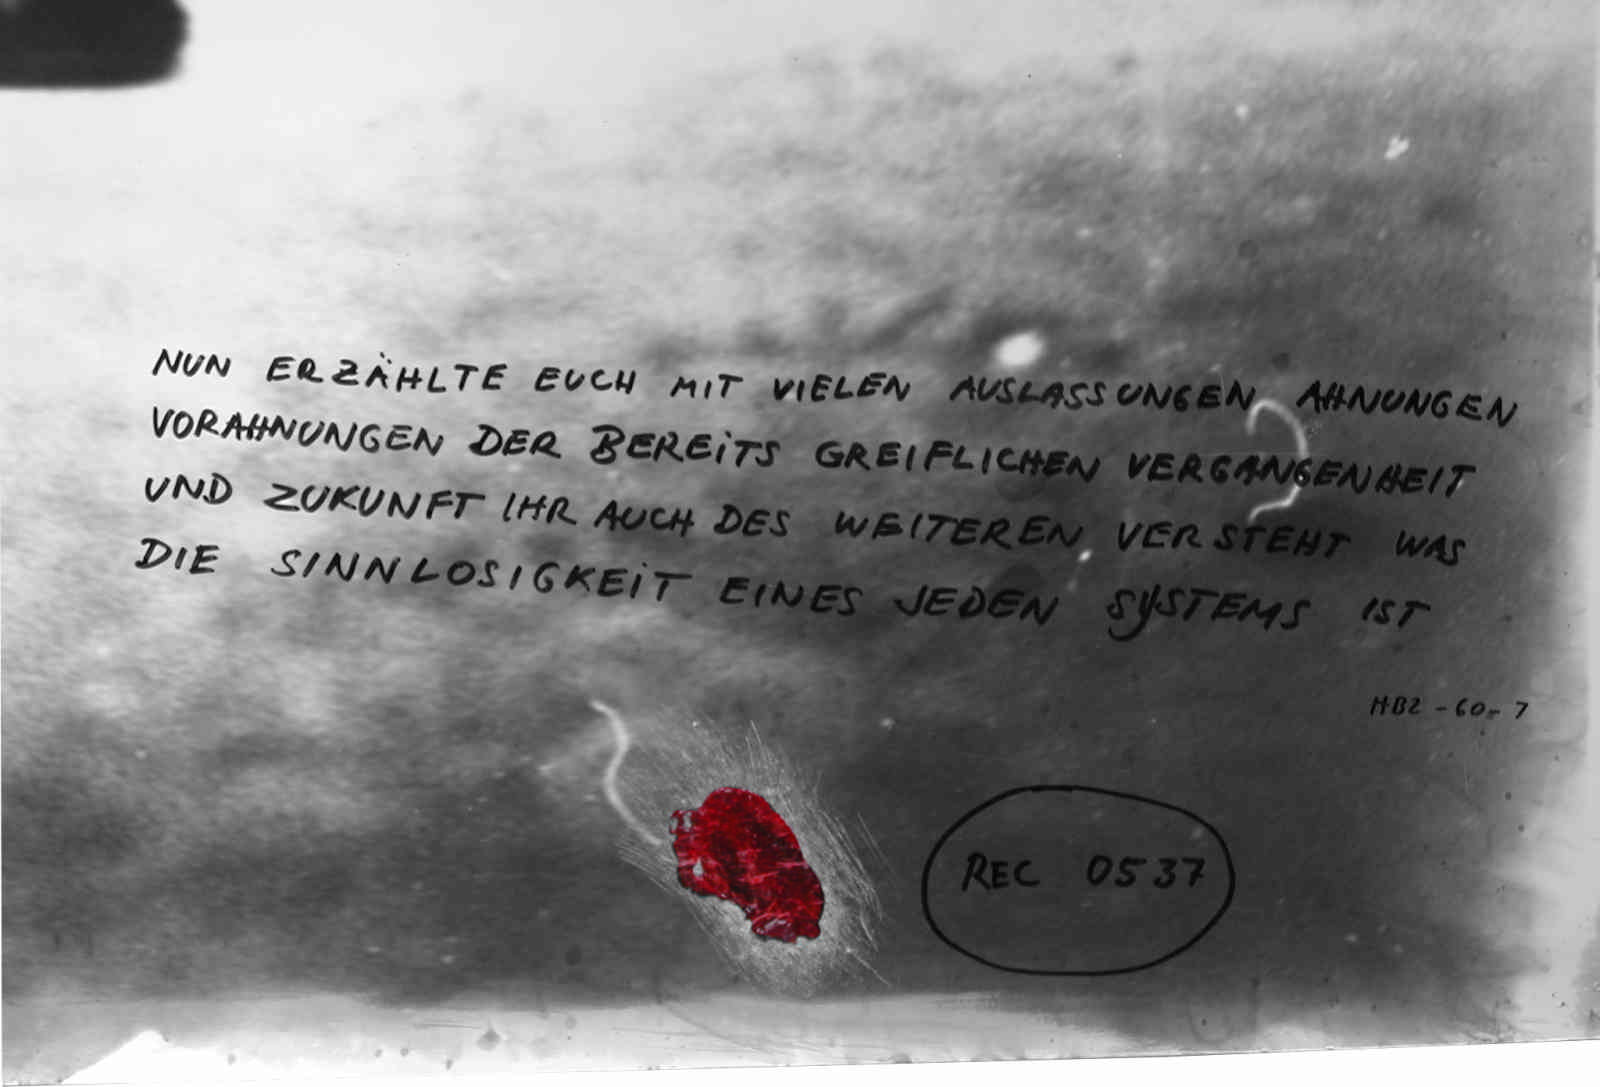 NUN ERZÄHLTE EUCH MIT VIELEN AUSLASSUNGEN AHNUNGEN
VORAHNUNGEN DER BEREITS GREIFLICHEN VERGANGENHEIT
UND ZUKUNFT IHR AUCH DES WEITEREN VERSTEHT WAS
DIE SINNLOSIGKEIT EINES JEDEN SYSTEMS IST
HB2-60-7
REC 0537